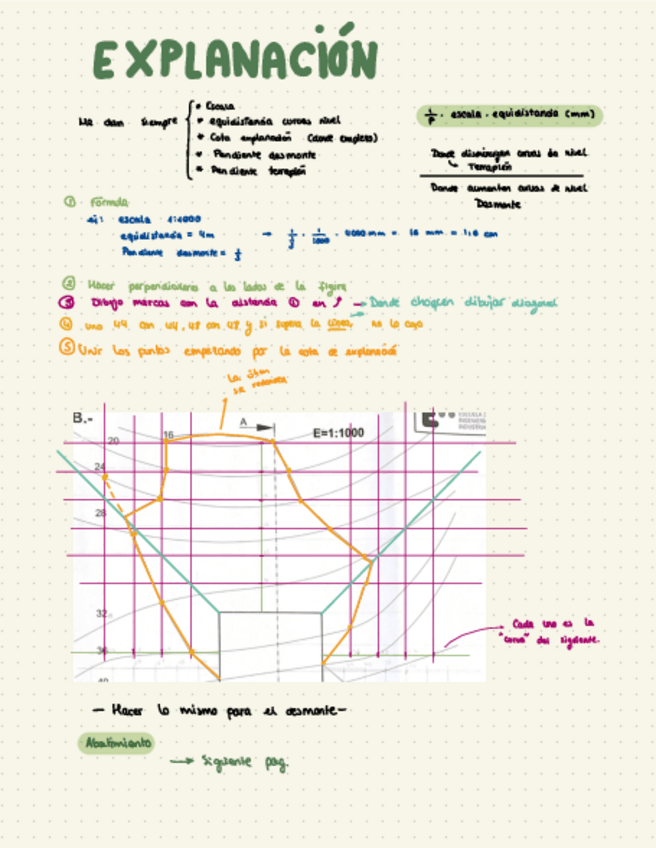 EXPLANACIÓN
Me dan siempre
• Escala
• equidistancia curvas nivel
• Cota explanación
• Pendiente desmonte
• Pendiente terraplén
1/P · escala · equidistancia (mm)
Donde disminuyen curvas de nivel
↳ Terraplén
Donde aumentan curvas de nivel
Desmonte
① Fórmula
escala 1:1000
equidistancia = 4m → 1/1000 · 4000 mm = 16 mm = 1,6 cm
Pendiente desmonte =
② Hacer perpendiculares a los lados de la figura
③ Dibujo marcas con la distancia ① en → Donde choquen dibujar diagonal
④ uno 44 con 44, 48 con 48 y si supera la línea, no lo cojo
⑤ Unir los puntos empezando por la cota de explanación
la última
se redondea
B.-
A
E=1:1000
16
20
24
28
32
36
40
Cada una es la
"curva" del siguiente.
— Hacer lo mismo para el desmonte —
Abatimiento
→ Siguiente pag.